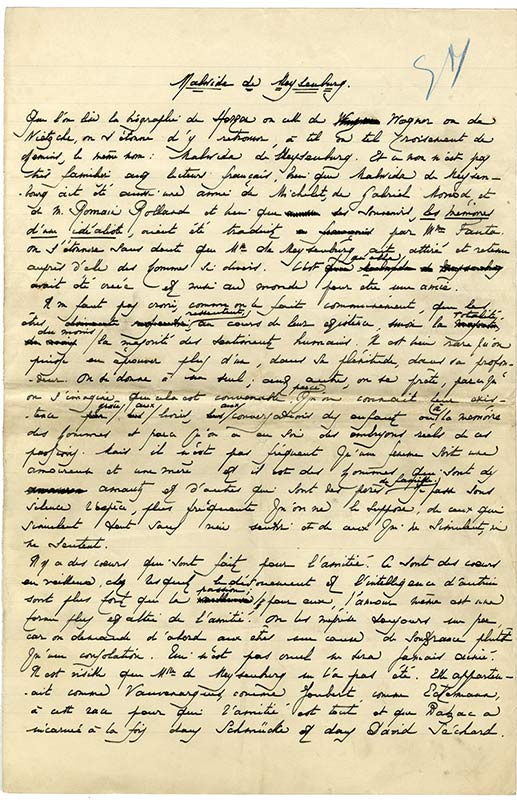 Malwide de Meysenburg.
Que l'on lise la biographie de Herzen ou celle de Wagner ou de
Nietzche, on s'étonne d'y retrouver, à tel ou tel croisement de
chemins, le même nom : Malwide de Meysenburg. Et ce nom n'est pas
très familier aux lecteurs français, bien que Malwide de Meysen-
burg ait été aussi une amie de Michelet, de Gabriel Monod et
de M. Romain Rolland et bien que ses Souvenirs, les mémoires
d'une idéaliste, aient été traduits par Mme Fanta
on s'étonne sans doute que Mlle de Meysenburg ait attiré et retenu
auprès d'elle des hommes si divers. C'est qu'elle
avait été créée et mise au monde pour être une amie.
Il ne faut pas croire, comme on le fait communément, que les
êtres ressentent au cours de leur existence, sinon la totalité,
du moins la majorité des sentiments humains. Il est bien rare qu'on
puisse en éprouver plus d'un, dans sa plénitude, dans sa profon-
deur. On se donne à un seul; aux autres, on se prête, parce qu'
on s'imagine que cela est convenable, parce qu'on connaît leur exis-
tence grâce aux livres, aux conversations des enfants ou à la mémoire
des hommes et parce qu'on a en soi des embryons réels de ces
passions. Mais il n'est pas fréquent qu'une femme soit une
amoureuse et une mère et il est des hommes qui sont des
amants et d'autres qui sont des pères de famille. Je passe sous
silence l'espèce, plus fréquente qu'on ne le suppose, de ceux qui
simulent tout sans rien sentir et de ceux qui ne simulent, ni
ne sentent.
Il y a des cœurs qui sont faits pour l'amitié. Ce sont des cœurs
en veilleuse, chez lesquels le dévouement et l'intelligence d'autrui
sont plus forts que la passion; pour eux, l'amour même est une
forme plus altière de l'amitié. On les méprise toujours un peu,
car on demande d'abord aux êtres une cause de souffrance plutôt
qu'une consolation. Qui n'est pas cruel ne sera jamais aimé.
Il est visible que Mlle de Meysenburg ne l'a pas été. Elle apparten-
ait comme Vauvenargues, comme Joubert comme Eckermann,
à cette race pour qui l'amitié est tout et que Balzac a
incarnée à la fois dans Schmücke et dans David Séchard.